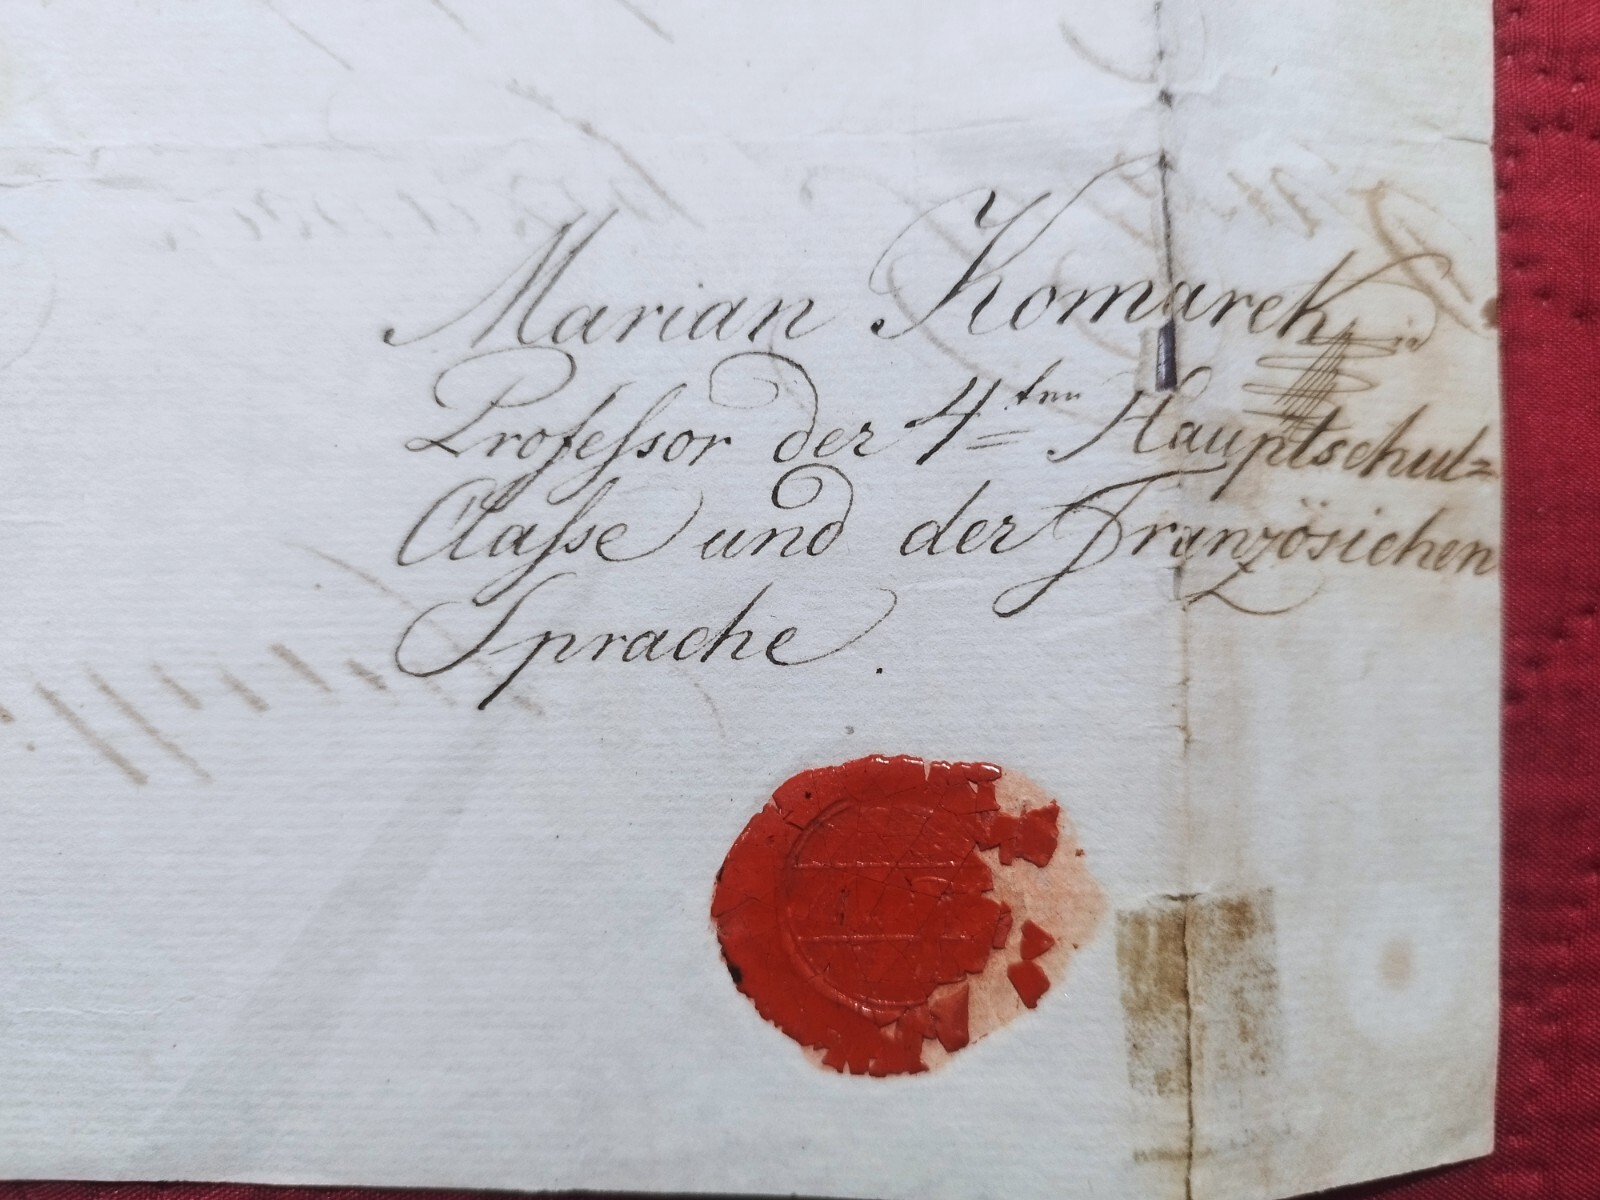 Marian Komarek
Profeſsor der 4ten Hauptschul=
Claſse und der Französichen
Sprache.